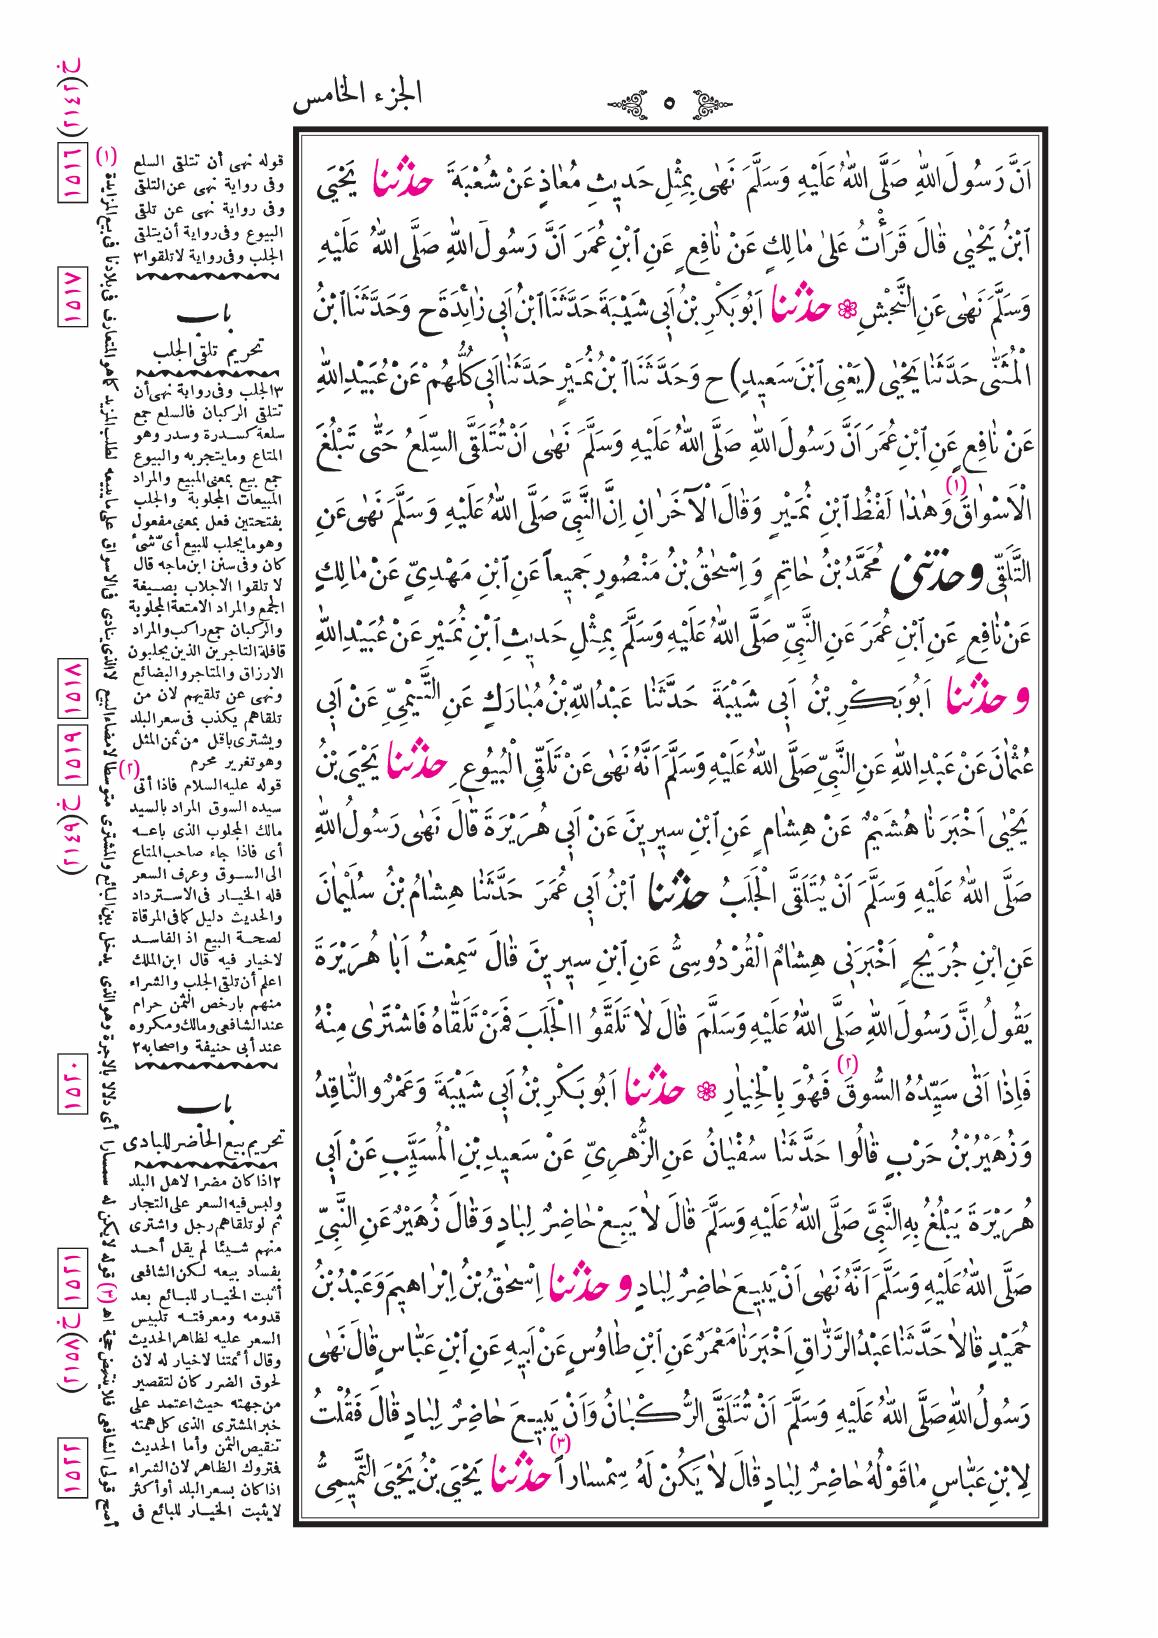 الجزء الخامس
٥
اَنَّ رَسُولَ اللهِ صَلَّى اللهُ عَلَيْهِ وَسَلَّمَ نَهٰى بِمِثْلِ حَديثِ مُعَاذٍ عَنْ شُعْبَةَ حدثنا يَحْيَى
ابْنُ يَحْيٰى قَالَ قَرَأْتُ عَلىٰ مَالِكٍ عَنْ نَافِعٍ عَنِ ابْنِ عُمَرَ اَنَّ رَسُولَ اللهِ صَلَّى اللهُ عَلَيْهِ
وَسَلَّمَ نَهٰى عَنِ النَّجْشِ ❀ حدثنا اَبُو بَكْرِ بْنُ اَبي شَيْبَةَ حَدَّثَنَا ابْنُ اَبي زَائِدَةَ ح وَحَدَّثَنَا ابْنُ
الْمُثَنّٰى حَدَّثَنَا يَحْيٰى (يَعْنِى ابْنَ سَعيدٍ) ح وَحَدَّثَنَا ابْنُ نُمَيْرٍ حَدَّثَنَا اَبي كُلُّهُمْ عَنْ عُبَيْدِ اللهِ
عَنْ نَافِعٍ عَنِ ابْنِ عُمَرَ اَنَّ رَسُولَ اللهِ صَلَّى اللهُ عَلَيْهِ وَسَلَّمَ نَهٰى اَنْ تُتَلَقَّى السِّلَعُ حَتّٰى تَبْلُغَ
الْاَسْوَاقَ (١) وَهٰذَا لَفْظُ ابْنِ نُمَيْرٍ وَقَالَ الْآخَرَانِ اِنَّ النَّبِيَّ صَلَّى اللهُ عَلَيْهِ وَسَلَّمَ نَهٰى عَنِ
التَّلَقّى وحدثنى مُحَمَّدُ بْنُ حَاتِمٍ وَ اِسْحٰقُ بْنُ مَنْصُورٍ جَميعاً عَنِ ابْنِ مَهْدِيٍّ عَنْ مَالِكٍ
عَنْ نَافِعٍ عَنِ ابْنِ عُمَرَ عَنِ النَّبِيِّ صَلَّى اللهُ عَلَيْهِ وَسَلَّمَ بِمِثْلِ حَديثِ ابْنِ نُمَيْرٍ عَنْ عُبَيْدِ اللهِ
وحدثنا اَبُو بَكْرِ بْنُ اَبي شَيْبَةَ حَدَّثَنَا عَبْدُ اللهِ بْنُ مُبَارَكٍ عَنِ التَّيْمِيِّ عَنْ اَبي
عُثْمَانَ عَنْ عَبْدِ اللهِ عَنِ النَّبِيِّ صَلَّى اللهُ عَلَيْهِ وَسَلَّمَ اَنَّهُ نَهٰى عَنْ تَلَقِّى الْبُيُوعِ حدثنا يَحْيَى بْنُ
يَحْيٰى اَخْبَرَنَا هُشَيْمٌ عَنْ هِشَامٍ عَنِ ابْنِ سيرينَ عَنْ اَبي هُرَيْرَةَ قَالَ نَهٰى رَسُولُ اللهِ
صَلَّى اللهُ عَلَيْهِ وَسَلَّمَ اَنْ يُتَلَقَّى الْجَلَبُ حدثنا ابْنُ اَبي عُمَرَ حَدَّثَنَا هِشَامُ بْنُ سُلَيْمَانَ
عَنِ ابْنِ جُرَيْجٍ اَخْبَرَني هِشَامٌ الْقُرْدُوسِيُّ عَنِ ابْنِ سيرينَ قَالَ سَمِعْتُ اَبَا هُرَيْرَةَ
يَقُولُ اِنَّ رَسُولَ اللهِ صَلَّى اللهُ عَلَيْهِ وَسَلَّمَ قَالَ لَا تَلَقَّوُا الْجَلَبَ فَمَنْ تَلَقَّاهُ فَاشْتَرٰى مِنْهُ
فَاِذَا اَتٰى سَيِّدُهُ السُّوقَ (٢) فَهُوَ بِالْخِيَارِ ❀ حدثنا اَبُو بَكْرِ بْنُ اَبي شَيْبَةَ وَعَمْرٌو النَّاقِدُ
وَزُهَيْرُ بْنُ حَرْبٍ قَالُوا حَدَّثَنَا سُفْيَانُ عَنِ الزُّهْرِيِّ عَنْ سَعيدِ بْنِ الْمُسَيَّبِ عَنْ اَبي
هُرَيْرَةَ يَبْلُغُ بِهِ النَّبِيَّ صَلَّى اللهُ عَلَيْهِ وَسَلَّمَ قَالَ لَا يَبِعْ حَاضِرٌ لِبَادٍ وَقَالَ زُهَيْرٌ عَنِ النَّبِيِّ
صَلَّى اللهُ عَلَيْهِ وَسَلَّمَ اَنَّهُ نَهٰى اَنْ يَبيعَ حَاضِرٌ لِبَادٍ وحدثنا اِسْحٰقُ بْنُ اِبْرَاهيمَ وَعَبْدُ بْنُ
حُمَيْدٍ قَالَا حَدَّثَنَا عَبْدُ الرَّزَّاقِ اَخْبَرَنَا مَعْمَرٌ عَنِ ابْنِ طَاوُسٍ عَنْ اَبيهِ عَنِ ابْنِ عَبَّاسٍ قَالَ نَهٰى
رَسُولُ اللهِ صَلَّى اللهُ عَلَيْهِ وَسَلَّمَ اَنْ تُتَلَقَّى الرُّكْبَانُ وَاَنْ يَبيعَ حَاضِرٌ لِبَادٍ قَالَ فَقُلْتُ
لِابْنِ عَبَّاسٍ مَا قَوْلُهُ حَاضِرٌ لِبَادٍ قَالَ لَا يَكُنْ لَهُ سِمْسَاراً (٣) حدثنا يَحْيَى بْنُ يَحْيَى التَّميمِيُّ
قوله نهى أن تتلقى السلع
وفى رواية نهى عن التلقى
وفى رواية نهى عن تلقى
البيوع وفى رواية أن يتلقى
الجلب وفى رواية لا تلقوا٣
باب
تحريم تلقى الجلب
٣الجلب وفى رواية نهى أن
تتلقى الركبان فالسلع جمع
سلعة كسدرة وسدر وهو
المتاع وما يتجر به والبيوع
جمع بيع بمعنى المبيع والمراد
المبيعات المجلوبة والجلب
بفتحتين فعل بمعنى مفعول
وهو ما يجلب للبيع أىّ شئ
كان وفى سنن ابن ماجه قال
لا تلقوا الاجلاب بصيغة
الجمع والمراد الامتعة المجلوبة
والركبان جمع راكب والمراد
قافلة التاجرين الذين يجلبون
الارزاق والمتاجر والبضائع
ونهى عن تلقيهم لان من
تلقاهم يكذب فى سعر البلد
ويشترى باقل من ثمن المثل
وهو تغرير محرم
(٢) قوله عليه السلام فاذا أتى
سيده السوق المراد بالسيد
مالك المجلوب الذى باعه
أى فاذا جاء صاحب المتاع
الى السوق وعرف السعر
فله الخيار فى الاسترداد
والحديث دليل كما فى المرقاة
لصحة البيع اذ الفاسد
لا خيار فيه قال ابن الملك
اعلم أن تلقى الجلب والشراء
منهم بارخص الثمن حرام
عند الشافعى ومالك ومكروه
عند أبى حنيفة واصحابه٢
باب
تحريم بيع الحاضر للبادى
٢اذا كان مضرا لاهل البلد
ولبس فيه السعر على التجار
ثم لو تلقاهم رجل واشترى
منهم شيئا لم يقل أحد
بفساد بيعه لكن الشافعى
أثبت الخيار للبائع بعد
قدومه ومعرفته تلبيس
السعر عليه لظاهر الحديث
وقال أئمتنا لا خيار له لان
لحوق الضرر كان لتقصير
من جهته حيث اعتمد على
خبر المشترى الذى كل همته
تنقيص الثمن وأما الحديث
فمتروك الظاهر لان الشراء
اذا كان بسعر البلد أو أكثر
لا يثبت الخيار للبائع فى
أصح قولى الشافعى فلا ينتهض حجة اه (٣) قوله لا يكن له سمسارا أى دلالا بالاجرة وهو الذى يدخل بين البائع والمشترى متوسطا لامضاء البيع لا الذى ينادى فى الاسواق على ما بيعه لطلب المزيد كما هو المتعارف فى بلادنا فى بيع المزايدة (١)
ج(١٤١٢)
١٥١٦
١٥١٨
١٥١٧
١٥١٩
ج(١٤٩٢)
١٥٢٠
١٥٢١
ج(١٥٧٢)
١٥٢٢